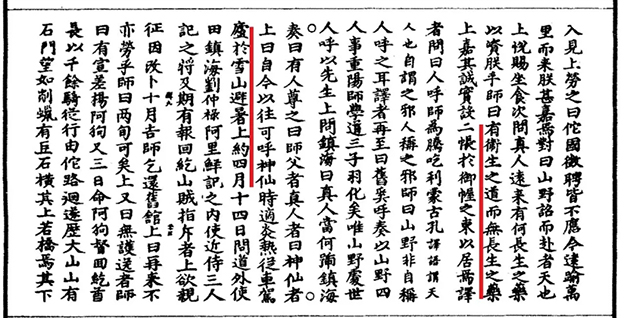 入見上勞之曰佗國徵聘皆不應今遠踰萬
里而來朕甚嘉焉對曰山野詔而赴者天也
上悅賜坐食次問真人遠來有何長生之藥
以資朕乎師曰有衛生之道而無長生之藥
上嘉其誠實設二帳於御幄之東以居焉譯
者問曰人呼師為騰吃利蒙古孔譯語謂天
人也自謂之邪人稱之邪師曰山野非自稱
人呼之耳譯者再至曰舊奚呼奏以山野四
人事重陽師學道三子羽化矣唯山野處世
人呼以先生上問鎮海曰真人當何號鎮海
奏曰有人尊之曰師父者真人者曰神仙者
上曰自今以往可呼神仙時適炎熱從車駕
廬於雪山避暑上約四月十四日問道外使
田鎮海劉仲祿阿里鮮記之內使近侍三人
記之將及期有報回紇山賊指斥者上欲親
征因改卜十月吉師乞還舊館上曰再來不
亦勞乎師曰兩旬可矣上又曰無護送者師
曰有宣差楊阿狗又三日命阿狗督回紇酋
長以千餘騎從行由佗路迴遂歷大山山有
石門望如削蠟有巨石橫其上若橋焉其下